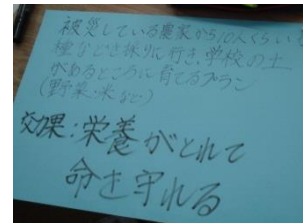 被災している農家から5〜10人くらいで
種などを採りに行き、学校の土
があるところに育てるプラン
(野菜・米など)
効果:栄養がとれて
命を守れる